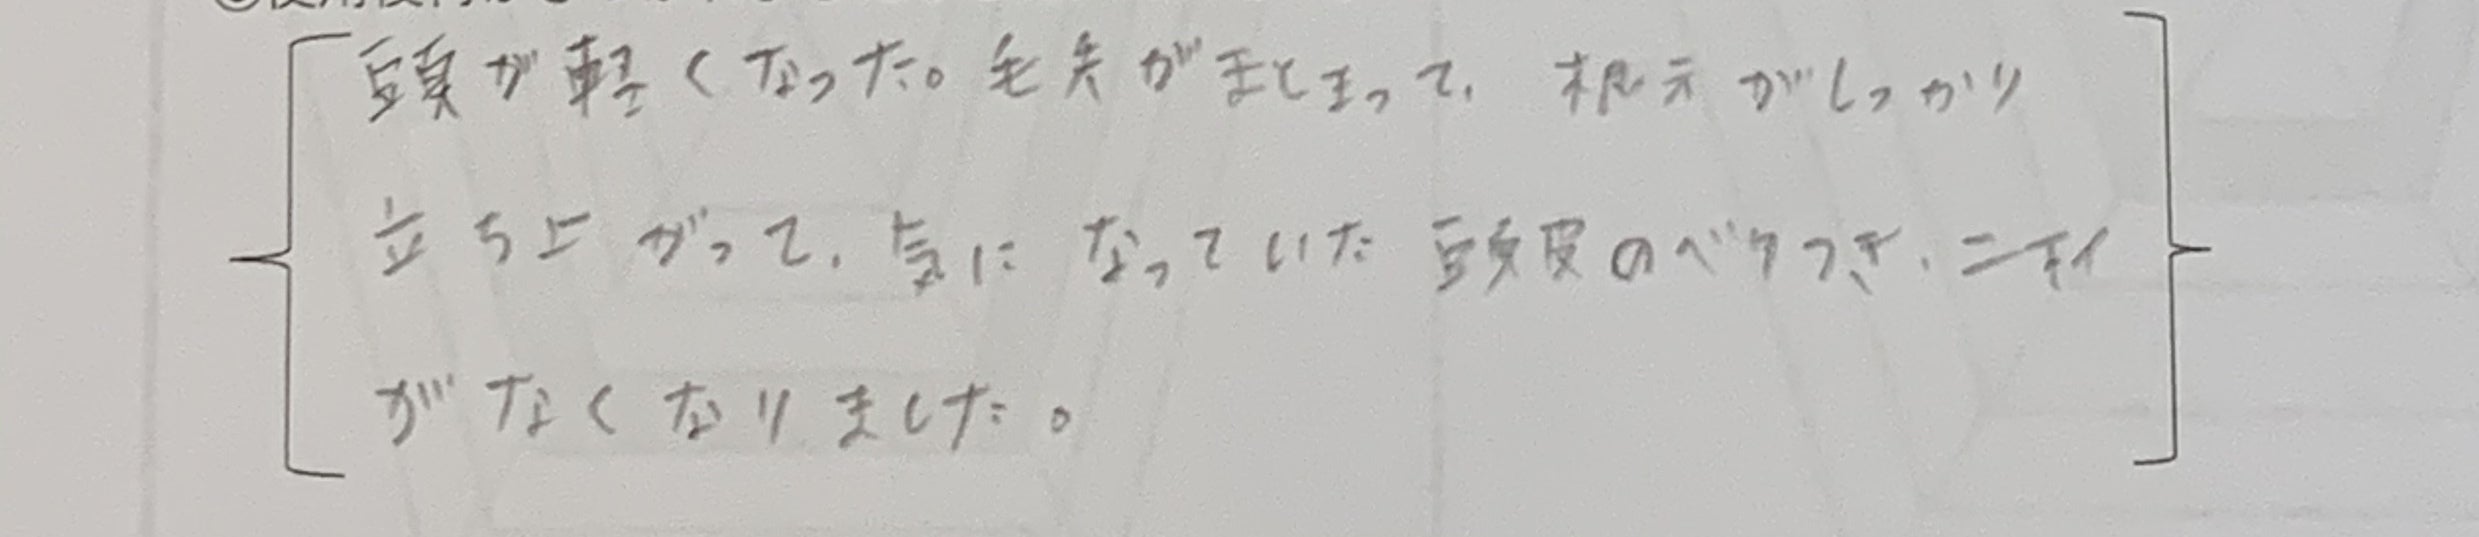 頭が軽くなった。毛先がまとまって、根元がしっかり
立ち上がって、気になっていた頭皮のベタつき、ニオイ
がなくなりました。